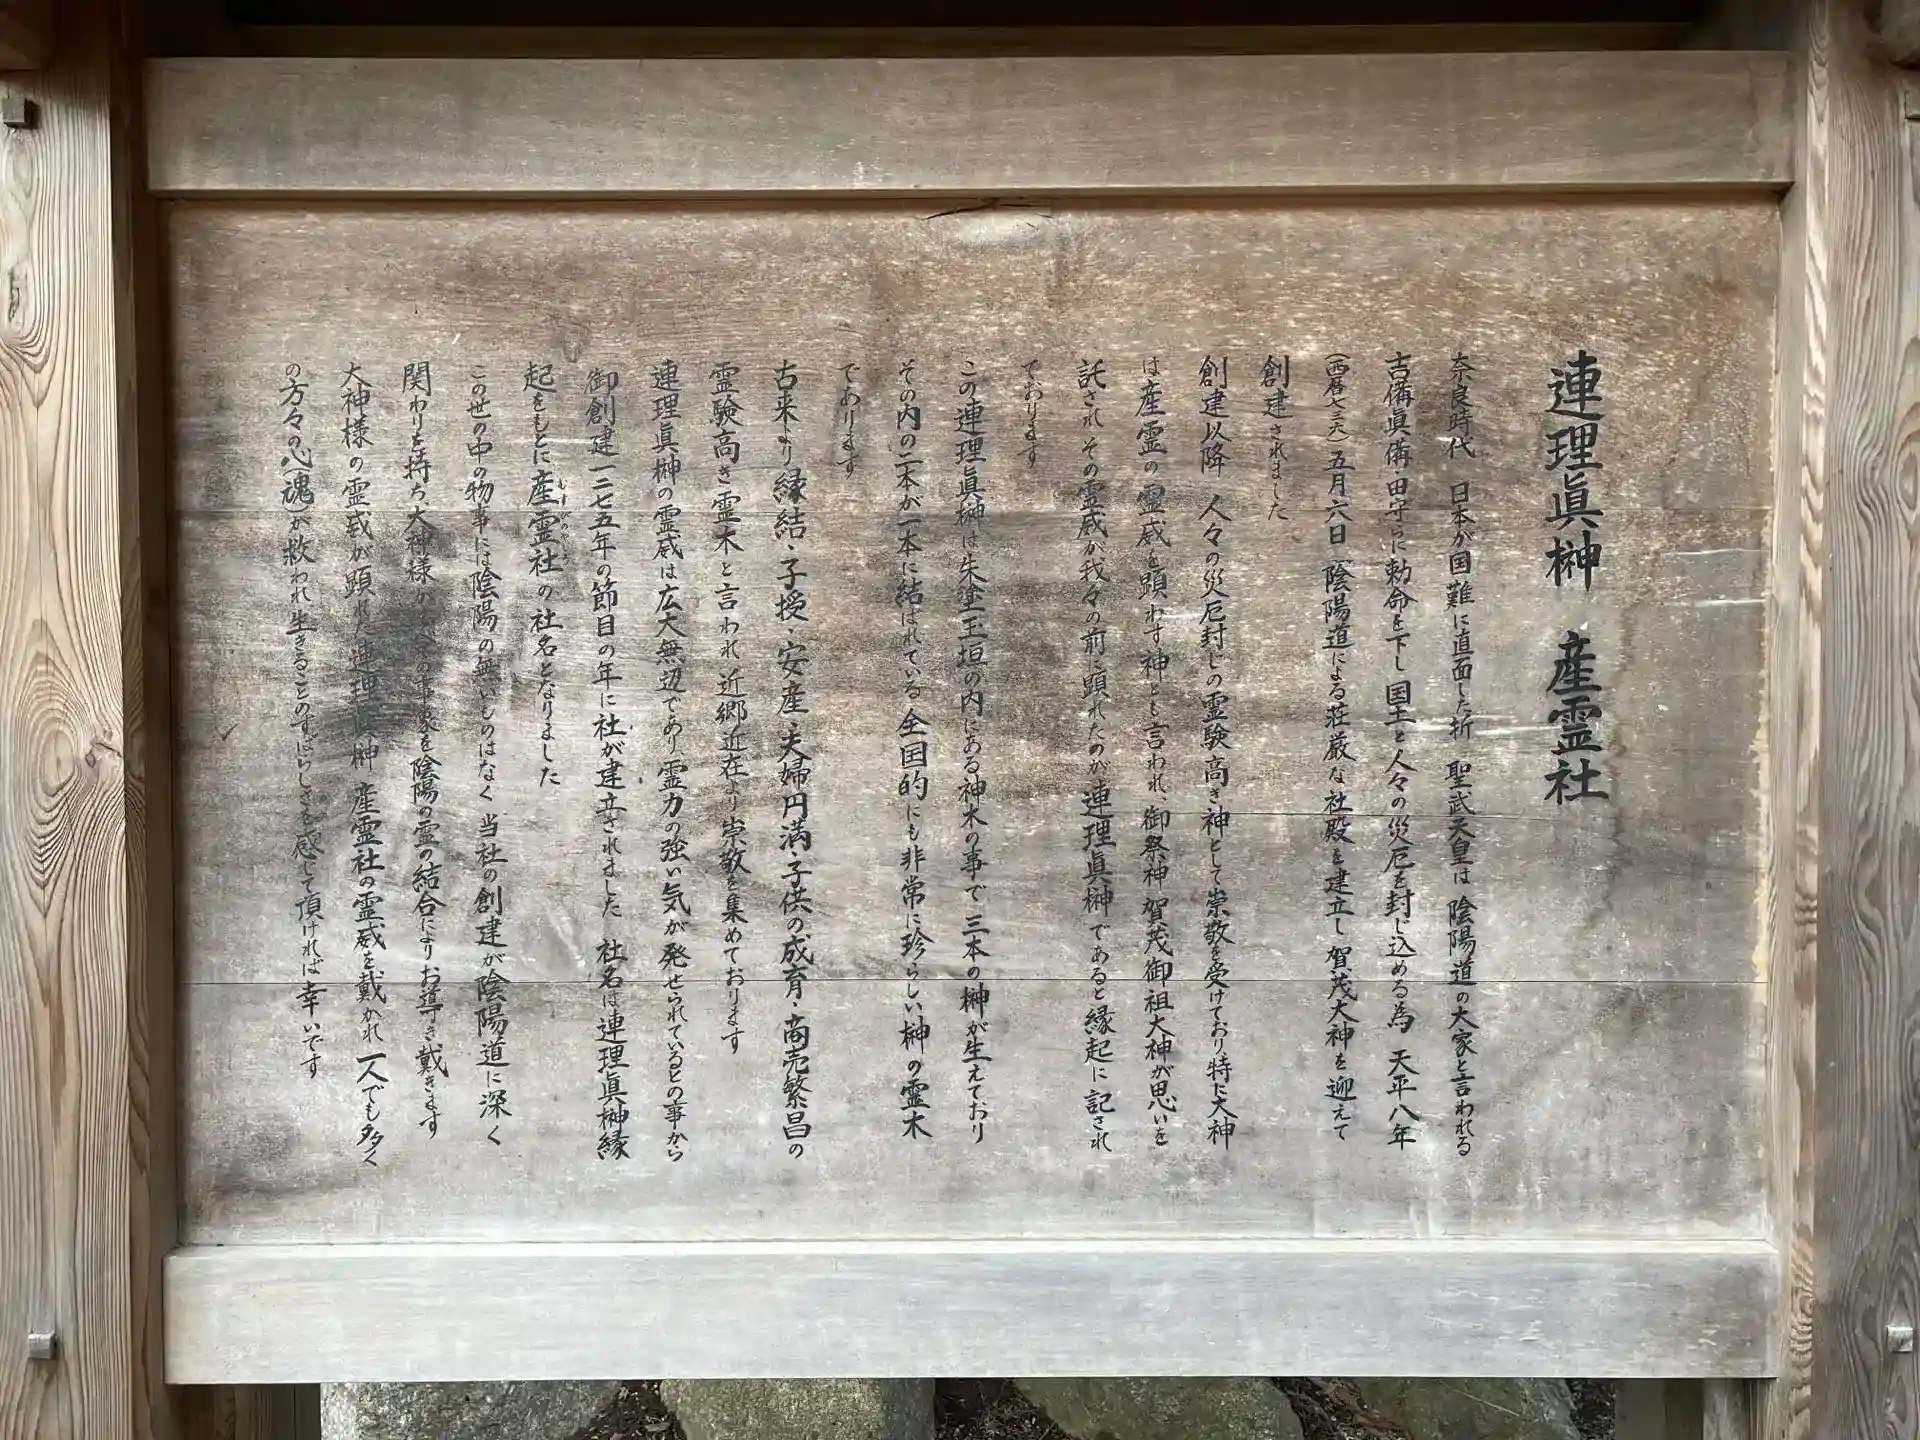 連理眞榊　産霊社
奈良時代　日本が国難に直面した折　聖武天皇は　陰陽道の大家と言われる
吉備眞備・田守らに勅命を下し国土と人々の災厄を封じ込める為　天平八年
（西暦七三六）五月六日　陰陽道による荘厳な社殿を建立し　賀茂大神を迎えて
創建されました
創建以降　人々の災厄封じの霊験高き神として崇敬を受けており特に大神
は産霊の霊威を顕わす神とも言われ、御祭神　賀茂御祖大神が思いを
託され　その霊威が我々の前に顕れたのが連理眞榊であると縁起に記され
ております
この連理眞榊は朱塗玉垣の内にある神木の事で　三本の榊が生えており
その内の二本が一本に結ばれている　全国的にも非常に珍らしい榊の霊木
であります
古来より縁結・子授・安産・夫婦円満・子供の成育・商売繁昌の
霊験高き霊木と言われ　近郷近在より崇敬を集めております
連理眞榊の霊威は広大無辺であり　霊力の強い気が発せられているとの事から
御創建一二七五年の節目の年に社が建立されました　社名は連理眞榊縁
起をもとに産霊社の社名となりました
むすびのやしろ
この世の中の物事には陰陽の無いものはなく　当社の創建が陰陽道に深く
関わりを持ち　大神様が の事象を陰陽の霊の結合によりお導き戴きます
大神様の霊威が顕れた連理眞榊　産霊社の霊威を戴かれ　一人でも多く
の方々の心（魂）が救われ　生きることのすばらしさを感じて頂ければ幸いです